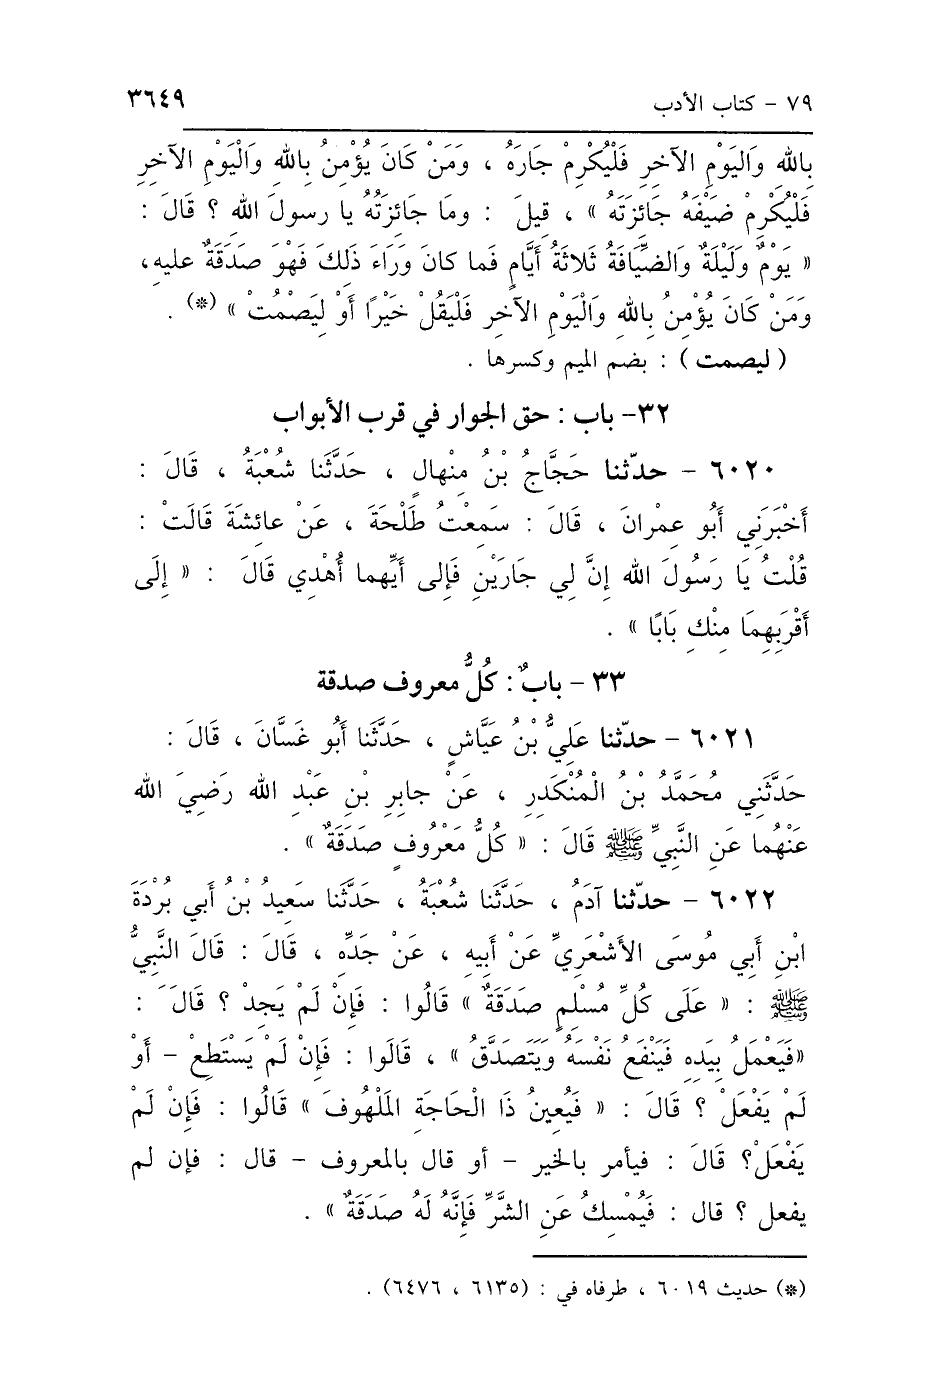 ٧٩ - كتاب الأدب ٣٦٤٩
بالله وَاليَوْمِ الآخرِ فَلْيُكْرِمْ جارَهُ ، وَمَنْ كَانَ يُؤْمِنُ بالله وَالْيَوْمِ الآخِرِ
فَلْيُكْرِمْ ضَيْفَهُ جَائِزَتَهُ » ، قِيلَ : وما جَائِزَتُهُ يا رسولَ الله ؟ قَالَ :
« يَوْمٌ وَلَيْلَةٌ وَالضِّيَافَةُ ثَلاثَةُ أَيَّامٍ فَما كانَ وَرَاءَ ذَلِكَ فَهْوَ صَدَقَةٌ عليهِ،
وَمَنْ كَانَ يُؤْمِنُ بِاللهِ وَالْيَوْمِ الآخِرِ فَلْيَقُلْ خَيْرًا أَوْ لِيَصْمُتْ » (*) .
( ليصمت ) : بضم الميم وكسرها .
٣٢- باب : حق الجوار في قرب الأبواب
٦٠٢٠ - حدّثنا حَجَّاجُ بْنُ مِنْهالٍ ، حَدَّثَنا شُعْبَةُ ، قَالَ :
أَخْبَرَنِي أَبُو عِمْرانَ ، قَالَ : سَمِعْتُ طَلْحَةَ ، عَنْ عائِشَةَ قَالَتْ :
قُلْتُ يَا رَسُولَ الله إِنَّ لِي جَارَيْنِ فَإلى أَيِّهِما أُهْدِي قَالَ : « إِلَى
أَقْرَبِهِمَا مِنْكِ بَابًا » .
٣٣ - بابٌ : كُلُّ معروف صدقة
٦٠٢١ - حدّثنا عَلِيُّ بْنُ عَيَّاشٍ ، حَدَّثَنا أَبُو غَسَّانَ ، قَالَ :
حَدَّثَنِي مُحَمَّدُ بْنُ الْمُنْكَدِرِ ، عَنْ جابِرِ بْنِ عَبْدِ الله رَضِيَ الله
عَنْهُما عَنِ النَّبِيِّ ﷺ قَالَ : « كُلُّ مَعْرُوفٍ صَدَقَةٌ » .
٦٠٢٢ - حدّثنا آدَمُ ، حَدَّثَنا شُعْبَةُ ، حَدَّثَنا سَعِيدُ بْنُ أَبي بُرْدَةَ
ابْنِ أَبِي مُوسَى الأَشْعَرِيِّ عَنْ أَبِيهِ ، عَنْ جَدِّهِ ، قَالَ : قَالَ النَّبِيُّ
ﷺ : « عَلَى كُلِّ مُسْلِمٍ صَدَقَةٌ » قَالُوا : فَإِنْ لَمْ يَجِدْ ؟ قَالَ :
«فَيَعْمَلُ بِيَدِهِ فَيَنْفَعُ نَفْسَهُ وَيَتَصَدَّقُ » ، قَالُوا : فَإِنْ لَمْ يَسْتَطِعْ - أَوْ
لَمْ يَفْعَلْ ؟ قَالَ : « فَيُعِينُ ذَا الْحَاجَةِ المَلْهُوفَ » قَالُوا : فَإِنْ لَمْ
يَفْعَلْ؟ قَالَ : فيأمر بالخير - أو قال بالمعروف - قال : فإن لم
يفعل ؟ قال : فَيُمْسِكُ عَنِ الشَّرِّ فَإِنَّهُ لَهُ صَدَقَةٌ » .
(*) حديث ٦٠١٩ ، طرفاه في : (٦١٣٥ ، ٦٤٧٦) .